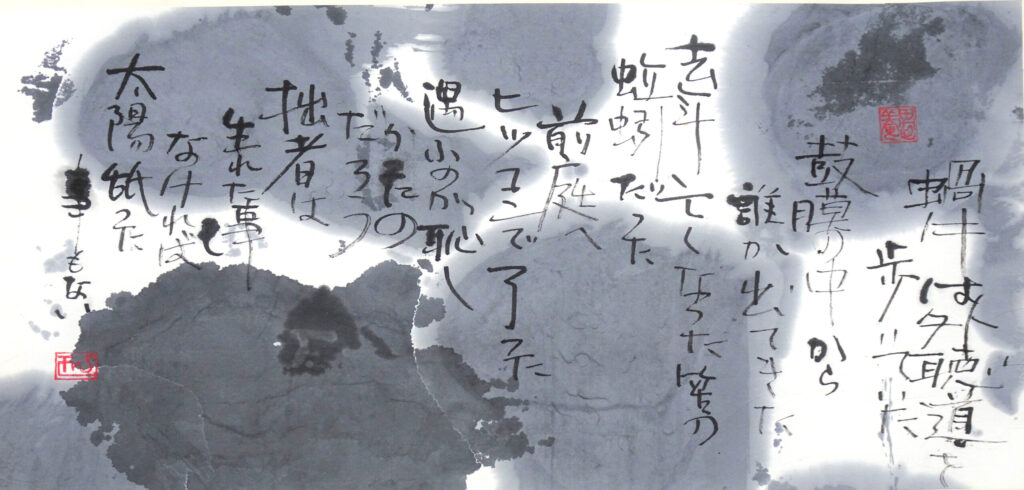 蝸牛は外聴道を
歩いてゐた
鼓膜の中から
誰か出てきた
去年亡くなった筈の
蚯蚓だった
前庭へ
ヒッコンで了った
遇ふのが恥し
かったの
だらう
拙者は
生れた事も
なければ
太陽
もない